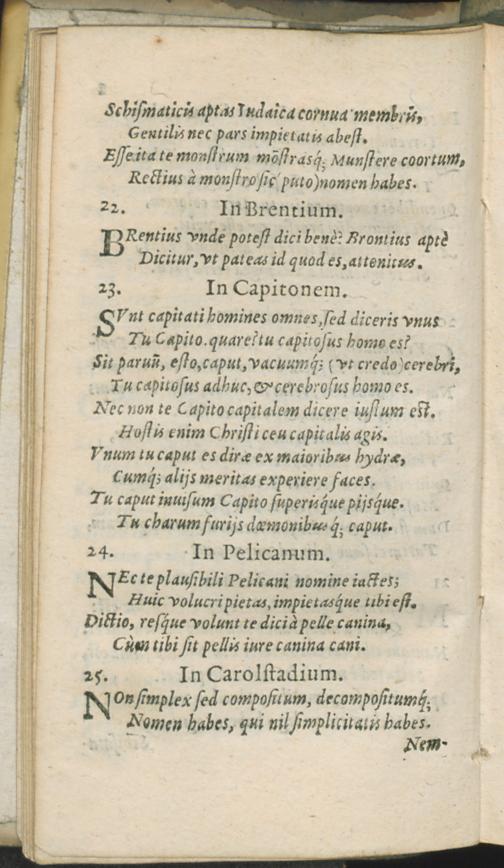 Schiſmaticis aptas Iudaica cornua membris,
Gentilis nec pars impietatis abeſt.
Eſſe ita te monſtrum mõſtrasq́; Munſtere coortum,
Rectius à monſtro ſic (puto) nomen habes.
22. In Brentium.
BRentius vnde poteſt dici benè? Brontius aptè
Dicitur, vt pateas id quod es, attonitus.
23. In Capitonem.
SVnt capitati homines omnes, ſed diceris vnus
Tu Capito. quare? tu capitoſus homo es?
Sit paruũ, eſto, caput, vacuumq́; (vt credo) cerebri,
Tu capitoſus adhuc, & cerebroſus homo es.
Nec non te Capito capitalem dicere iuſtum eſt.
Hoſtis enim Chriſti ceu capitalis agis.
Vnum tu caput es diræ ex maioribus hydræ,
Cumq́; alijs meritas experiere faces.
Tu caput inuiſum Capito ſuperisque pijsque.
Tu charum furijs dæmonibus q́; caput.
24. In Pelicanum.
NEc te plauſibili Pelicani nomine iactes;
Huic volucri pietas, impietasque tibi eſt.
Dictio, resque volunt te dici à pelle canina,
Cùm tibi ſit pellis iure canina cani.
25. In Carolſtadium.
NOn ſimplex ſed compoſitum, decompoſitumq́;
Nomen habes, qui nil ſimplicitatis habes.
Nem-